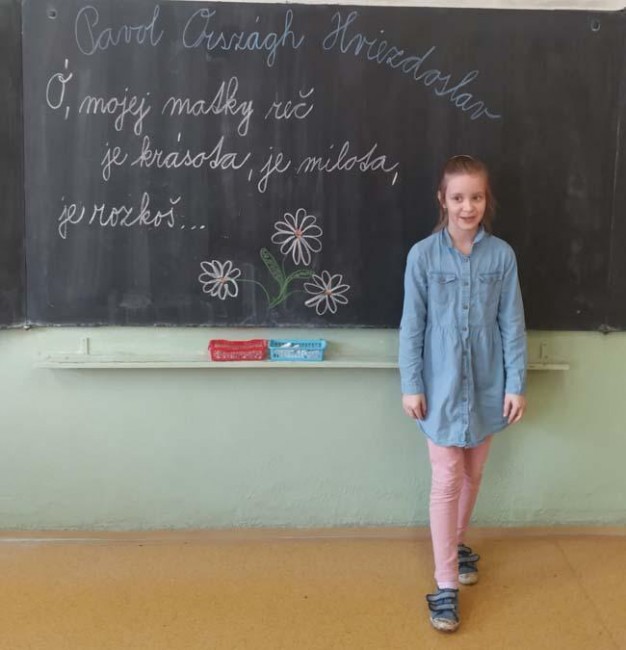 Pavol Országh Hviezdoslav
Ó, mojej matky reč
je krásota, je milota,
je rozkoš...